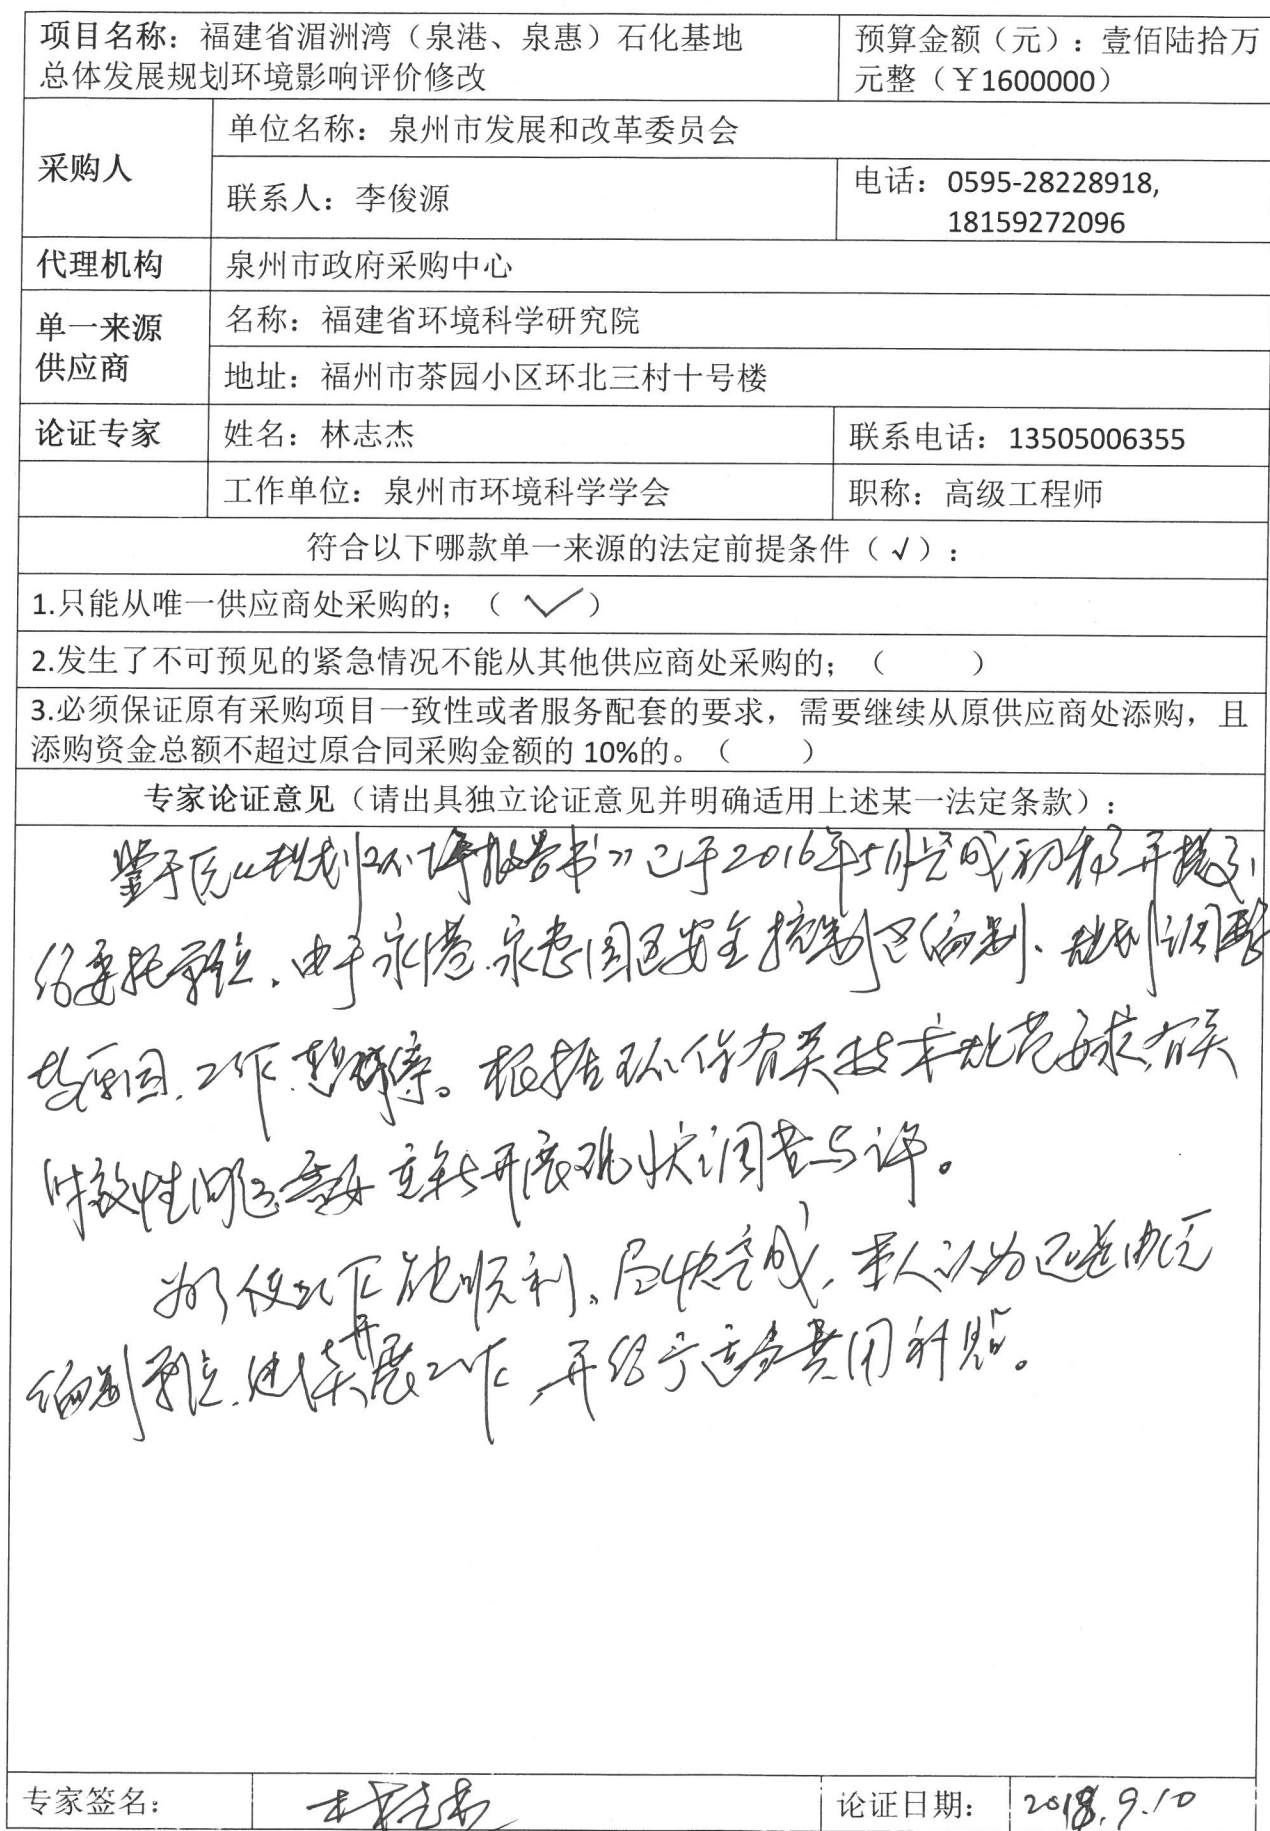 项目名称：福建省湄洲湾（泉港、泉惠）石化基地
总体发展规划环境影响评价修改
预算金额（元）：壹佰陆拾万
元整（￥1600000）
采购人
单位名称：泉州市发展和改革委员会
联系人：李俊源
电话：0595-28228918,
18159272096
代理机构
泉州市政府采购中心
单一来源
供应商
名称：福建省环境科学研究院
地址：福州市茶园小区环北三村十号楼
论证专家
姓名：林志杰
联系电话：13505006355
工作单位：泉州市环境科学学会
职称：高级工程师
符合以下哪款单一来源的法定前提条件（√）：
1.只能从唯一供应商处采购的；（ ✓ ）
2.发生了不可预见的紧急情况不能从其他供应商处采购的；（ ）
3.必须保证原有采购项目一致性或者服务配套的要求，需要继续从原供应商处添购，且
添购资金总额不超过原合同采购金额的 10%的。（ ）
专家论证意见（请出具独立论证意见并明确适用上述某一法定条款）：
鉴于原《规划环评报告书》已于2016年5月完成初稿并提交
给委托单位，由于泉港、泉惠园区安全控制区编制、规划调整
等原因，工作暂停。根据环保有关技术规范要求，有关
时效性问题需要重新开展现状调查与评。
为了使工作能顺利、尽快完成，本人认为还是由原
编制单位继续开展工作，并给予适当费用补贴。
专家签名：
林志杰
论证日期：
2018.9.10